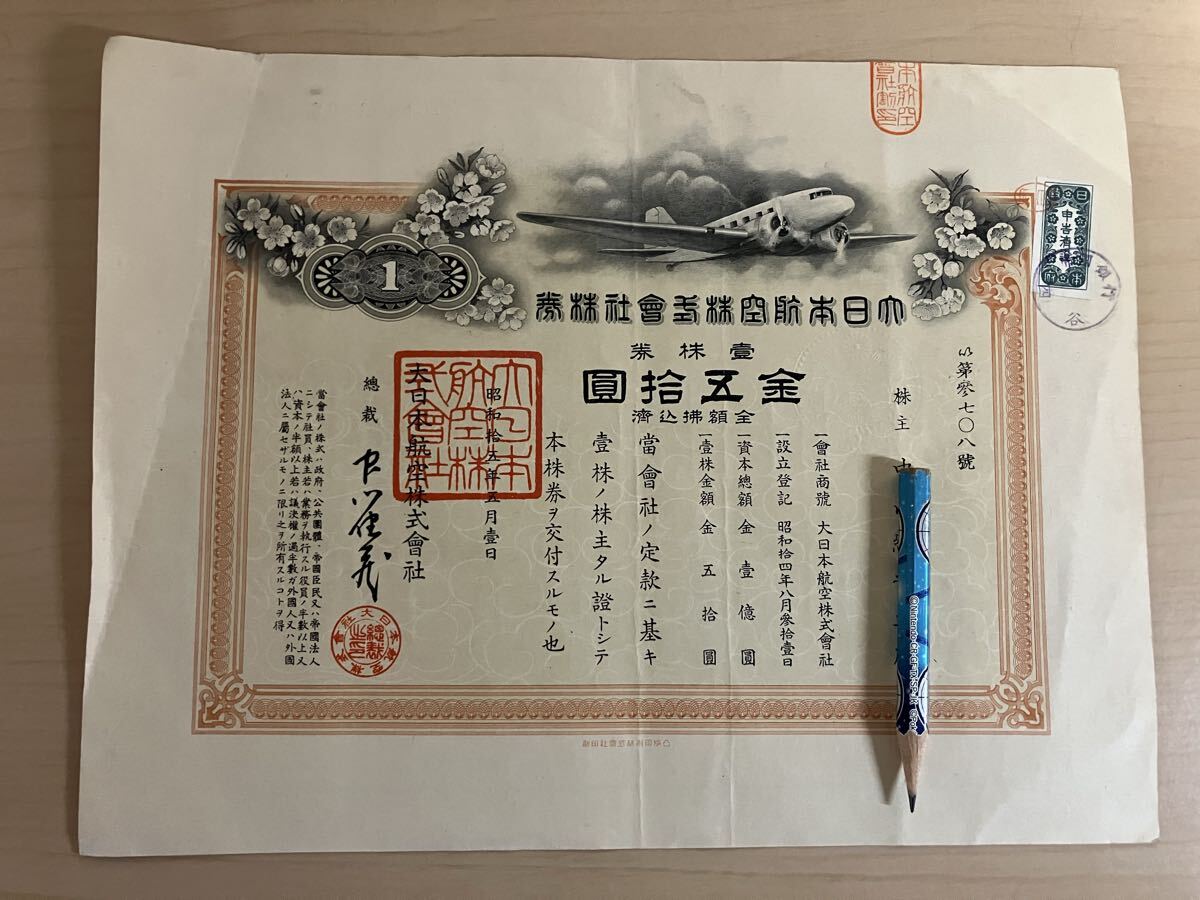 大日本航空株式會社株券
壹株券
金五拾圓
全額拂込濟
1
い第參七〇八號
株主
一會社商號 大日本航空株式會社
一設立登記 昭和拾四年八月參拾壹日
一資本總額 金壹億圓
一壹株金額 金五拾圓
當會社ノ定款ニ基キ
壹株ノ株主タル證トシテ
本株券ヲ交付スルモノ也
昭和拾五年五月壹日
大日本航空株式會社
總裁
當會社ノ株式ハ政府、公共團體、帝國臣民又ハ帝國法人
ニシテ社員、株主若ハ業務ヲ執行スル役員ノ半數以上又
ハ資本ノ半額以上若ハ議決權ノ過半數ガ外國人又ハ外國
法人ニ屬セザルモノニ限リ之ヲ所有スルコトヲ得
大日本航空株式會社
大日本航空株式會社
總裁之印
凸版印刷株式會社印刷
申告濟
谷